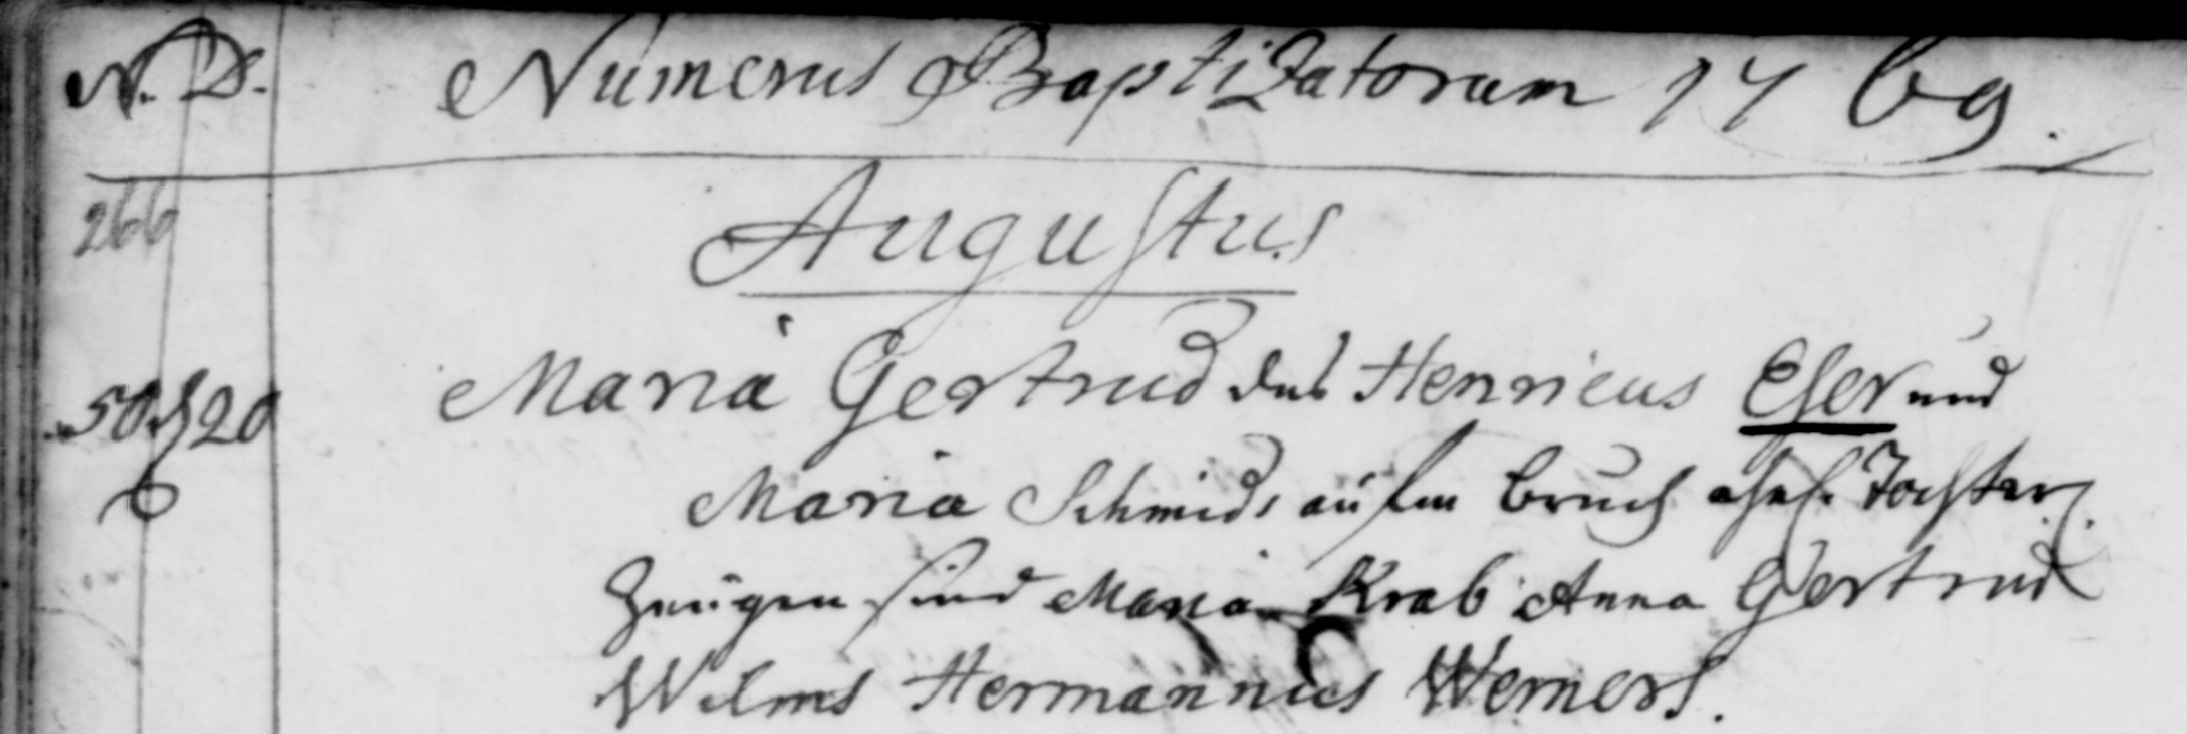 N. D. Numerus Baptizatorum 1769.
266
Augustus
50. 20 Maria Gertrud des Henricus Eser und
Maria Schmids aufm bruch ehel. Tochter.
Zeugen sind Maria Krab Anna Gertrud
Wilms Hermannus Werners.